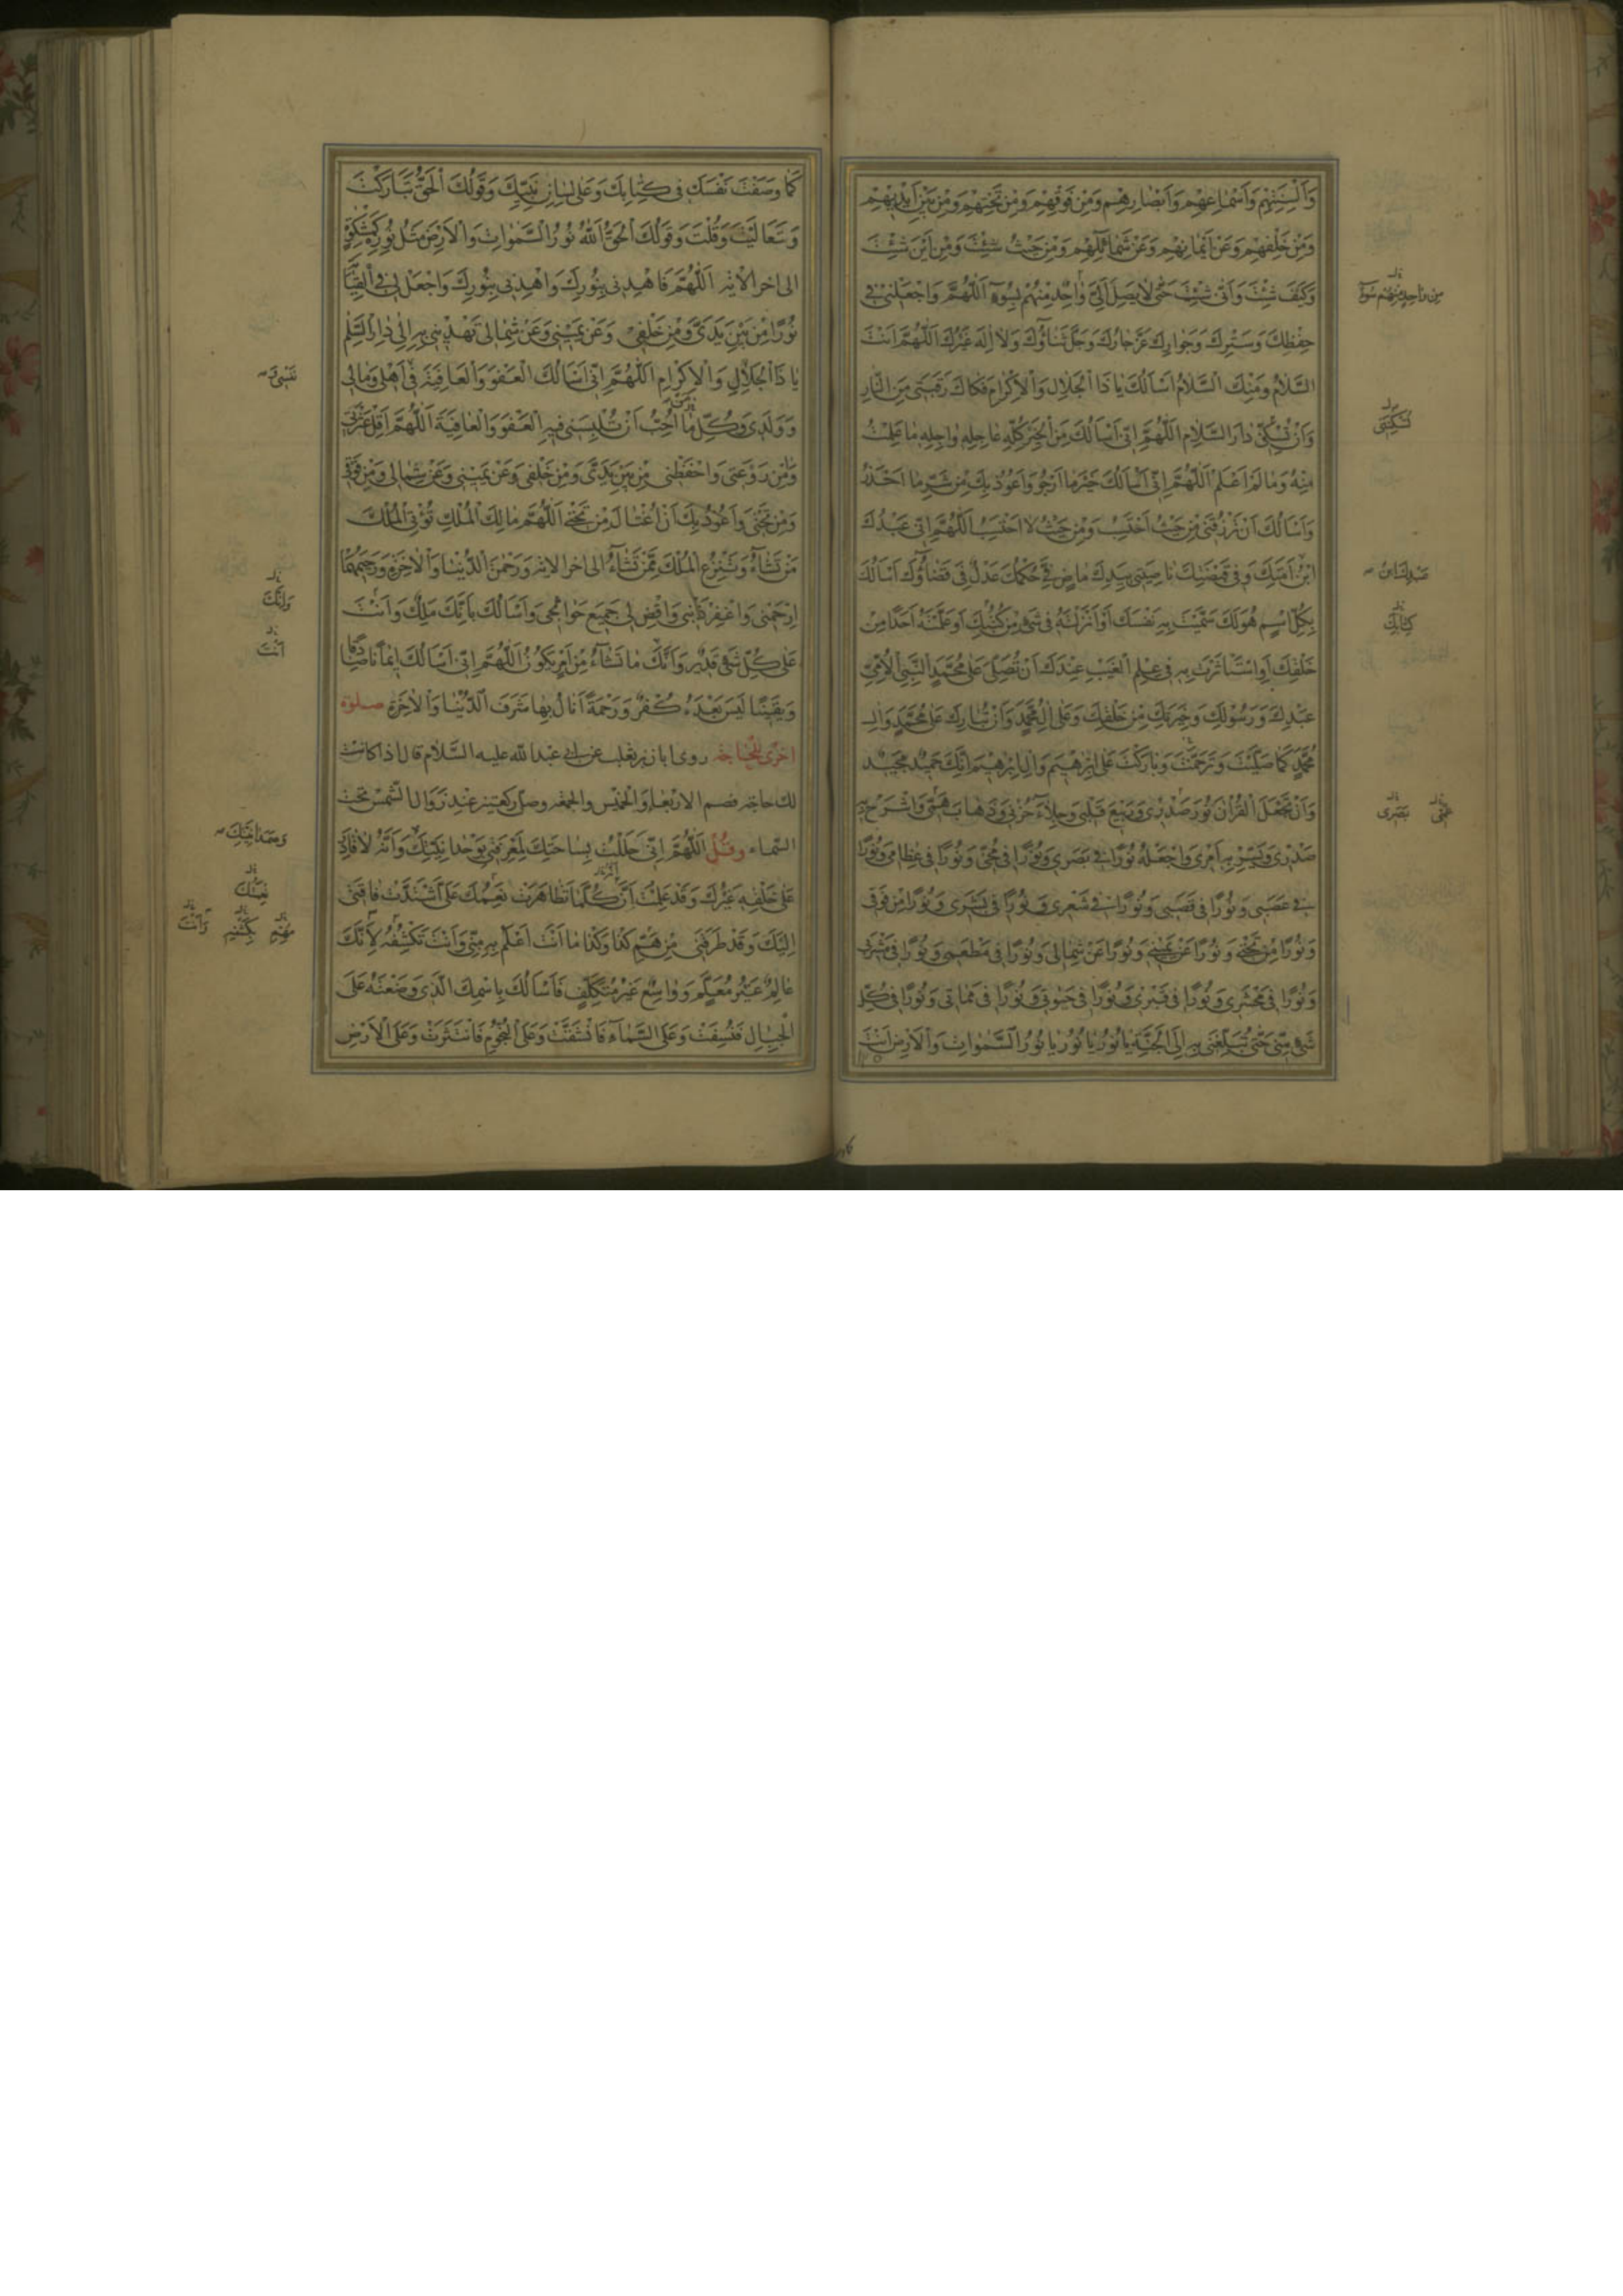 وَأَلْسِنَتِهِمْ وَأَسْمَاعِهِمْ وَأَبْصَارِهِمْ وَمِنْ فَوْقِهِمْ وَمِنْ تَحْتِهِمْ وَمِنْ بَيْنِ أَيْدِيهِمْ
وَمِنْ خَلْفِهِمْ وَعَنْ أَيْمَانِهِمْ وَعَنْ شَمَائِلِهِمْ وَمِنْ حَيْثُ شِئْتَ وَمِنْ أَيْنَ شِئْتَ
وَكَيْفَ شِئْتَ وَأَنّٰى شِئْتَ حَتّٰى لَا يَصِلَ إِلَيَّ وَاحِدٌ مِنْهُمْ بِسُوءٍ اَللّٰهُمَّ وَاجْعَلْنِي فِي
حِفْظِكَ وَسِتْرِكَ وَجِوَارِكَ عَزَّ جَارُكَ وَجَلَّ ثَنَاؤُكَ وَلَا إِلٰهَ غَيْرُكَ اَللّٰهُمَّ أَنْتَ
السَّلَامُ وَمِنْكَ السَّلَامُ أَسْأَلُكَ يَا ذَا الْجَلَالِ وَالْإِكْرَامِ فَكَاكَ رَقَبَتِي مِنَ النَّارِ
وَأَنْ تُسْكِنَنِي دَارَ السَّلَامِ اَللّٰهُمَّ إِنِّي أَسْأَلُكَ مِنَ الْخَيْرِ كُلِّهِ عَاجِلِهِ وَاجِلِهِ مَا عَلِمْتُ
مِنْهُ وَمَا لَمْ أَعْلَمْ اَللّٰهُمَّ إِنِّي أَسْأَلُكَ خَيْرَ مَا أَرْجُو وَأَعُوذُ بِكَ مِنْ شَرِّ مَا أَحْذَرُ
وَأَسْأَلُكَ أَنْ تَرْزُقَنِي مِنْ حَيْثُ أَحْتَسِبُ وَمِنْ حَيْثُ لَا أَحْتَسِبُ اَللّٰهُمَّ إِنِّي عَبْدُكَ
ابْنُ أَمَتِكَ وَفِي قَبْضَتِكَ نَاصِيَتِي بِيَدِكَ مَاضٍ فِيَّ حُكْمُكَ عَدْلٌ فِيَّ قَضَاؤُكَ أَسْأَلُكَ
بِكُلِّ اسْمٍ هُوَ لَكَ سَمَّيْتَ بِهِ نَفْسَكَ أَوْ أَنْزَلْتَهُ فِي شَيْءٍ مِنْ كُتُبِكَ أَوْ عَلَّمْتَهُ أَحَدًا مِنْ
خَلْقِكَ أَوِ اسْتَأْثَرْتَ بِهِ فِي عِلْمِ الْغَيْبِ عِنْدَكَ أَنْ تُصَلِّيَ عَلٰى مُحَمَّدٍ النَّبِيِّ الْأُمِّيِّ
عَبْدِكَ وَرَسُولِكَ وَخِيَرَتِكَ مِنْ خَلْقِكَ وَعَلٰى اٰلِ مُحَمَّدٍ وَأَنْ تُبَارِكَ عَلٰى مُحَمَّدٍ وَاٰلِ
مُحَمَّدٍ كَمَا صَلَّيْتَ وَتَرَحَّمْتَ وَبَارَكْتَ عَلٰى إِبْرٰهِيمَ وَاٰلِ إِبْرٰهِيمَ إِنَّكَ حَمِيدٌ مَجِيدٌ
وَأَنْ تَجْعَلَ الْقُرْاٰنَ نُورَ صَدْرِي وَرَبِيعَ قَلْبِي وَجِلَاءَ حُزْنِي وَذَهَابَ هَمِّي وَاشْرَحْ بِهِ
صَدْرِي وَيَسِّرْ بِهِ أَمْرِي وَاجْعَلْهُ نُورًا فِي بَصَرِي وَنُورًا فِي مُخِّي وَنُورًا فِي عِظَامِي وَنُورًا
فِي عَصَبِي وَنُورًا فِي قَصَبِي وَنُورًا فِي شَعْرِي وَنُورًا فِي بَشَرِي وَنُورًا مِنْ فَوْقِي
وَنُورًا مِنْ تَحْتِي وَنُورًا عَنْ يَمِينِي وَنُورًا عَنْ شِمَالِي وَنُورًا فِي مَطْعَمِي وَنُورًا فِي مَشْرَبِي
وَنُورًا فِي مَحْشَرِي وَنُورًا فِي قَبْرِي وَنُورًا فِي حَيٰوتِي وَنُورًا فِي مَمَاتِي وَنُورًا فِي كُلِّ
شَيْءٍ مِنِّي حَتّٰى تُبَلِّغَنِي بِهِ إِلَى الْجَنَّةِ يَا نُورُ يَا نُورُ يَا نُورَ السَّمٰوَاتِ وَالْأَرْضِ أَنْتَ
مِنْ وَاحِدٍ مِنْهُمْ سُوءٌ
تُسْكِنَنِي
عَبْدِكَ ابْنُ
كِتَابِكَ
بَصَرِي
كَمَا وَصَفْتَ نَفْسَكَ فِي كِتَابِكَ وَعَلٰى لِسَانِ نَبِيِّكَ وَقَوْلُكَ الْحَقُّ تَبَارَكْتَ
وَتَعَالَيْتَ وَقُلْتَ وَقَوْلُكَ الْحَقُّ اَللّٰهُ نُورُ السَّمٰوَاتِ وَالْأَرْضِ مَثَلُ نُورِهِ كَمِشْكٰوةٍ
الى اخر الاية اَللّٰهُمَّ فَاهْدِنِي بِنُورِكَ وَاهْدِنِي بِنُورِكَ وَاجْعَلْ لِي فِي الْقِيٰمَةِ
نُورًا مِنْ بَيْنِ يَدَيَّ وَمِنْ خَلْفِي وَعَنْ يَمِينِي وَعَنْ شِمَالِي تَهْدِينِي بِهِ إِلٰى دَارِ السَّلٰمِ
يَا ذَا الْجَلَالِ وَالْإِكْرَامِ اَللّٰهُمَّ إِنِّي أَسْأَلُكَ الْعَفْوَ وَالْعَافِيَةَ فِي أَهْلِي وَمَالِي
وَوَلَدِي وَكُلِّ مَا أُحِبُّ أَنْ تُلْبِسَنِي فِيهِ الْعَفْوَ وَالْعَافِيَةَ اَللّٰهُمَّ أَقِلْ عَثْرَتِي
وَاٰمِنْ رَوْعَتِي وَاحْفَظْنِي مِنْ بَيْنِ يَدَيَّ وَمِنْ خَلْفِي وَعَنْ يَمِينِي وَعَنْ شِمَالِي وَمِنْ فَوْقِي
وَمِنْ تَحْتِي وَأَعُوذُ بِكَ أَنْ أُغْتَالَ مِنْ تَحْتِي اَللّٰهُمَّ مَالِكَ الْمُلْكِ تُؤْتِي الْمُلْكَ
مَنْ تَشَاءُ وَتَنْزِعُ الْمُلْكَ مِمَّنْ تَشَاءُ الى اخر الاية وَرَحْمٰنَ الدُّنْيَا وَالْاٰخِرَةِ وَرَحِيمَهُمَا
اِرْحَمْنِي وَاغْفِرْ ذَنْبِي وَاقْضِ لِي جَمِيعَ حَوَائِجِي وَأَسْأَلُكَ بِأَنَّكَ مَلِكٌ وَأَنْتَ
عَلٰى كُلِّ شَيْءٍ قَدِيرٌ وَأَنَّكَ مَا تَشَاءُ مِنْ أَمْرٍ يَكُونُ اَللّٰهُمَّ إِنِّي أَسْأَلُكَ إِيمَانًا صَادِقًا
وَيَقِينًا لَيْسَ بَعْدَهُ كُفْرٌ وَرَحْمَةً أَنَالُ بِهَا شَرَفَ الدُّنْيَا وَالْاٰخِرَةِ صلوة
اخرى للحاجة روى ابان بن تغلب عن ابي عبد الله عليه السلام قال اذا كانت
لك حاجة فصم الاربعاء والخميس والجمعة وصل ركعتين عند زوال الشمس تحت
السماء وقل اَللّٰهُمَّ إِنِّي حَلَلْتُ بِسَاحَتِكَ لِمَعْرِفَتِي بِوَحْدَانِيَّتِكَ وَأَنَّهُ لَا قَادِرَ
عَلٰى خَلْقِهِ غَيْرُكَ وَقَدْ عَلِمْتُ أَنَّ كُلَّمَا تَظَاهَرَتْ نِعَمُكَ عَلَيَّ اشْتَدَّتْ فَاقَتِي
إِلَيْكَ وَقَدْ طَرَقَنِي مِنْ هَمِّ كَذَا وَكَذَا مَا أَنْتَ أَعْلَمُ بِهِ مِنِّي وَأَنْتَ تَكْشِفُهُ لِأَنَّكَ
عَالِمٌ غَيْرُ مُعَلَّمٍ وَوَاسِعٌ غَيْرُ مُتَكَلِّفٍ فَأَسْأَلُكَ بِاسْمِكَ الَّذِي وَضَعْتَهُ عَلَى
الْجِبَالِ فَنُسِفَتْ وَعَلَى السَّمَاءِ فَانْشَقَّتْ وَعَلَى النُّجُومِ فَانْتَثَرَتْ وَعَلَى الْأَرْضِ
وَإِنَّكَ
أَنْتَ
وَصَمَدَانِيَّتِكَ
نِعْمَتُكَ